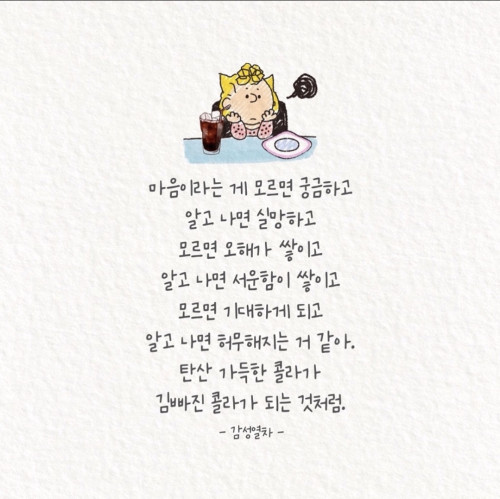 마음이라는 게 모르면 궁금하고
알고 나면 실망하고
모르면 오해가 쌓이고
알고 나면 서운함이 쌓이고
모르면 기대하게 되고
알고 나면 허무해지는 거 같아.
탄산 가득한 콜라가
김빠진 콜라가 되는 것처럼.
- 감성열차 -